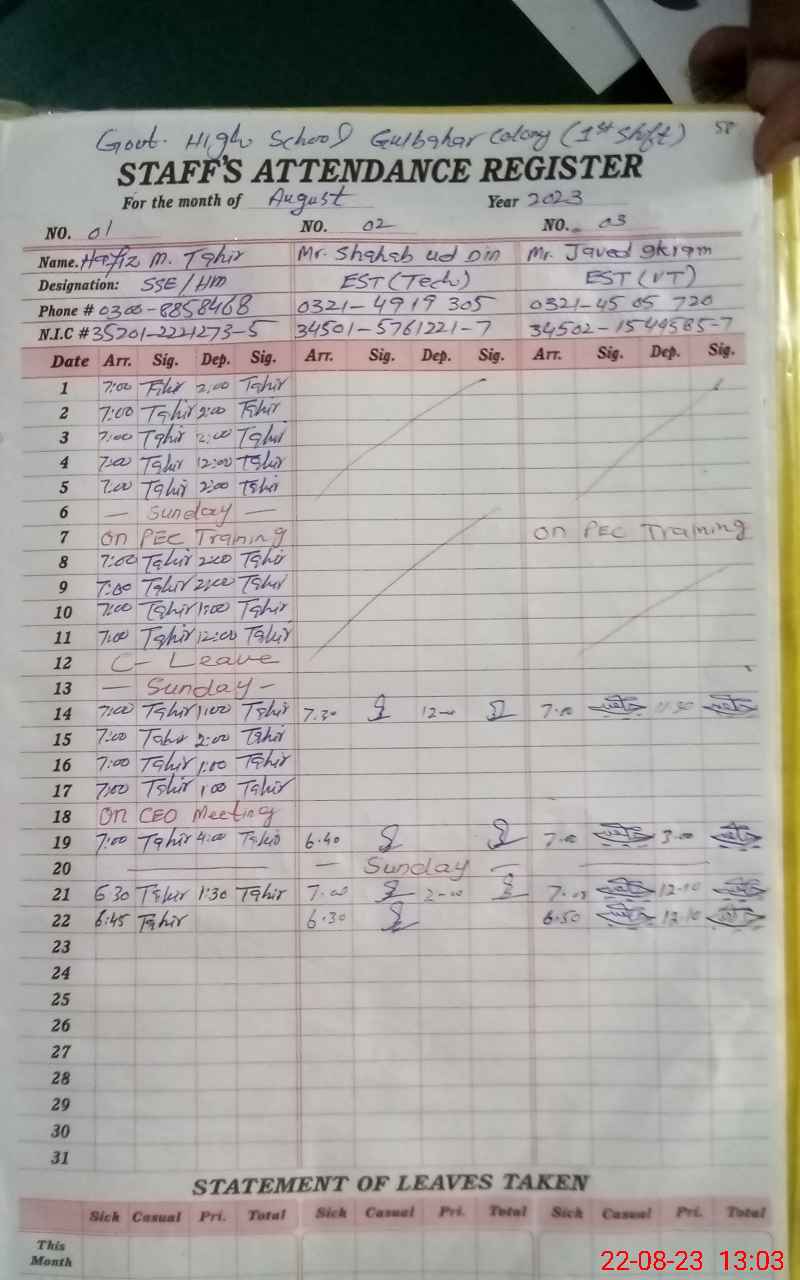 58
Govt. High School Gulbahar Colony (1st Shift)
STAFF'S ATTENDANCE REGISTER
For the month of August Year 2023
NO. 01 NO. 02 NO. 03
Name. Hafiz M. Tahir Mr. Shahab ud Din Mr. Javed Ikram
Designation: SSE/HM EST (Tech) EST (VT)
Phone # 0300-8858468 0321-4919305 0321-4505720
N.I.C # 35201-2221273-5 34501-5761221-7 34502-1549585-7
Date Arr. Sig. Dep. Sig. Arr. Sig. Dep. Sig. Arr. Sig. Dep. Sig.
1 7:00 Tahir 2:00 Tahir
2 7:00 Tahir 2:00 Tahir
3 7:00 Tahir 2:00 Tahir
4 7:00 Tahir 12:00 Tahir
5 7:00 Tahir 2:00 Tahir
6 — Sunday —
7 On PEC Training On PEC Training
8 7:00 Tahir 2:00 Tahir
9 7:00 Tahir 2:00 Tahir
10 7:00 Tahir 1:00 Tahir
11 7:00 Tahir 12:00 Tahir
12 C- Leave
13 — Sunday -
14 7:00 Tahir 1:00 Tahir 7.30 12-00 7.00 11.30
15 7:00 Tahir 2:00 Tahir
16 7:00 Tahir 1:00 Tahir
17 7:00 Tahir 1:00 Tahir
18 On CEO Meeting
19 7:00 Tahir 4:00 Tahir 6.40 7.00 3.00
20 — Sunday —
21 6 30 Tahir 1:30 Tahir 7.00 2-00 7.05 12-10
22 6:45 Tahir 6.30 6.50 12.10
23
24
25
26
27
28
29
30
31
STATEMENT OF LEAVES TAKEN
Sick Casual Pri. Total Sick Casual Pri. Total Sick Casual Pri. Total
This
Month
22-08-23 13:03